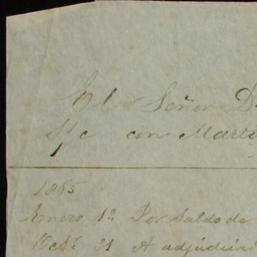 El Señor D
S/c con Mart
1865
Enero 1º Por Saldo de
Oct. 31 A adjudica